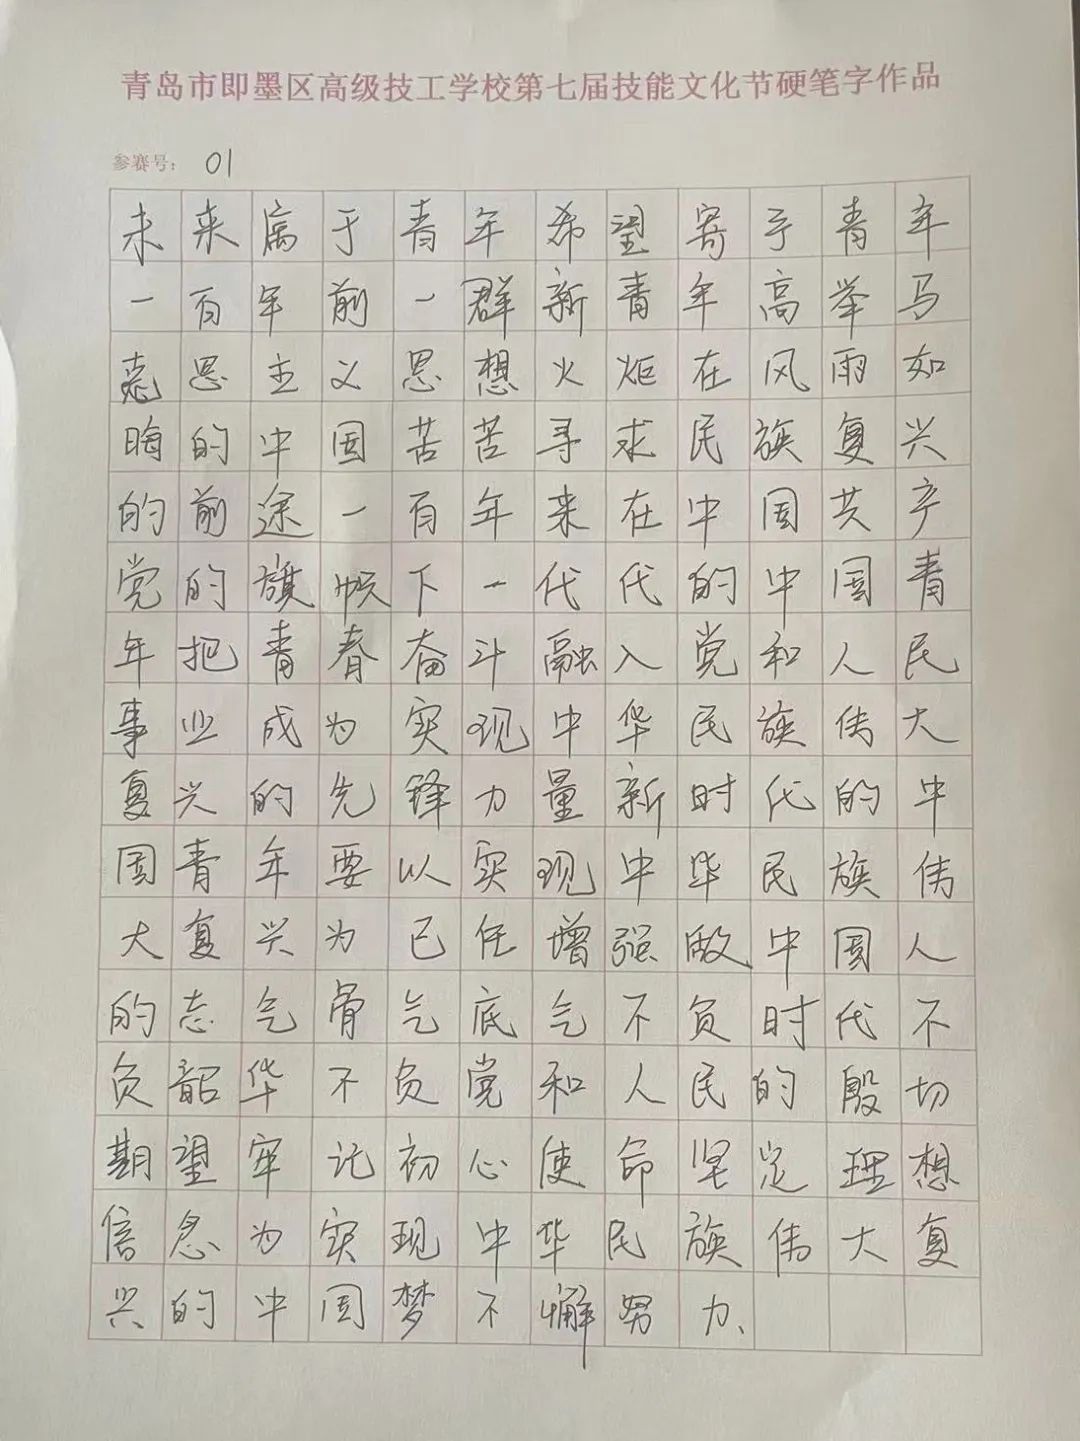 青岛市即墨区高级技工学校第七届技能文化节硬笔字作品
参赛号： 01
未来属于青年希望寄予青年
一百年前一群新青年高举马
克思主义思想火炬在风雨如
晦的中国苦苦寻求民族复兴
的前途一百年来在中国共产
党的旗帜下一代代的中国青
年把青春奋斗融入党和人民
事业成为实现中华民族伟大
复兴的先锋力量新时代的中
国青年要以实现中华民族伟
大复兴为己任增强做中国人
的志气骨气底气不负时代不
负韶华不负党和人民的殷切
期望牢记初心使命坚定理想
信念为实现中华民族伟大复
兴的中国梦不懈努力、